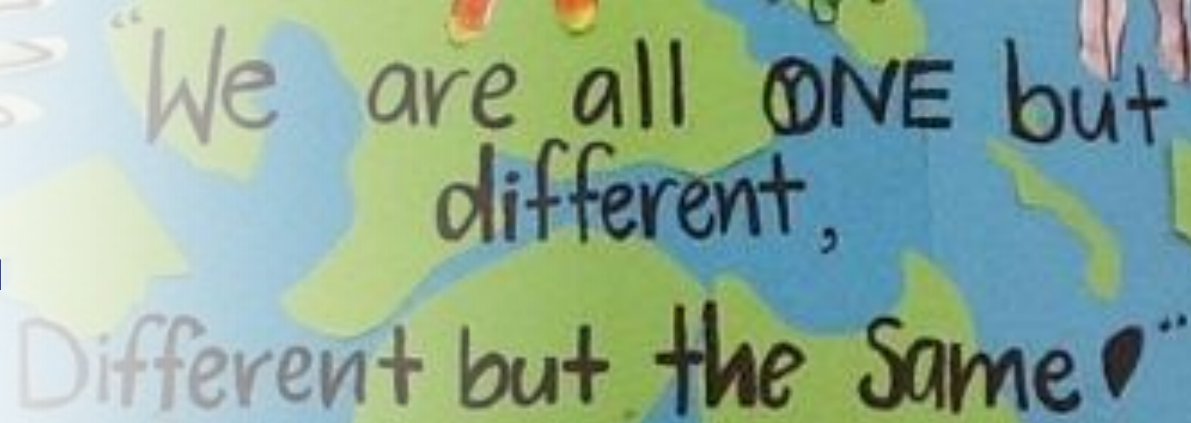 "We are all ONE but
different,
Different but the Same"